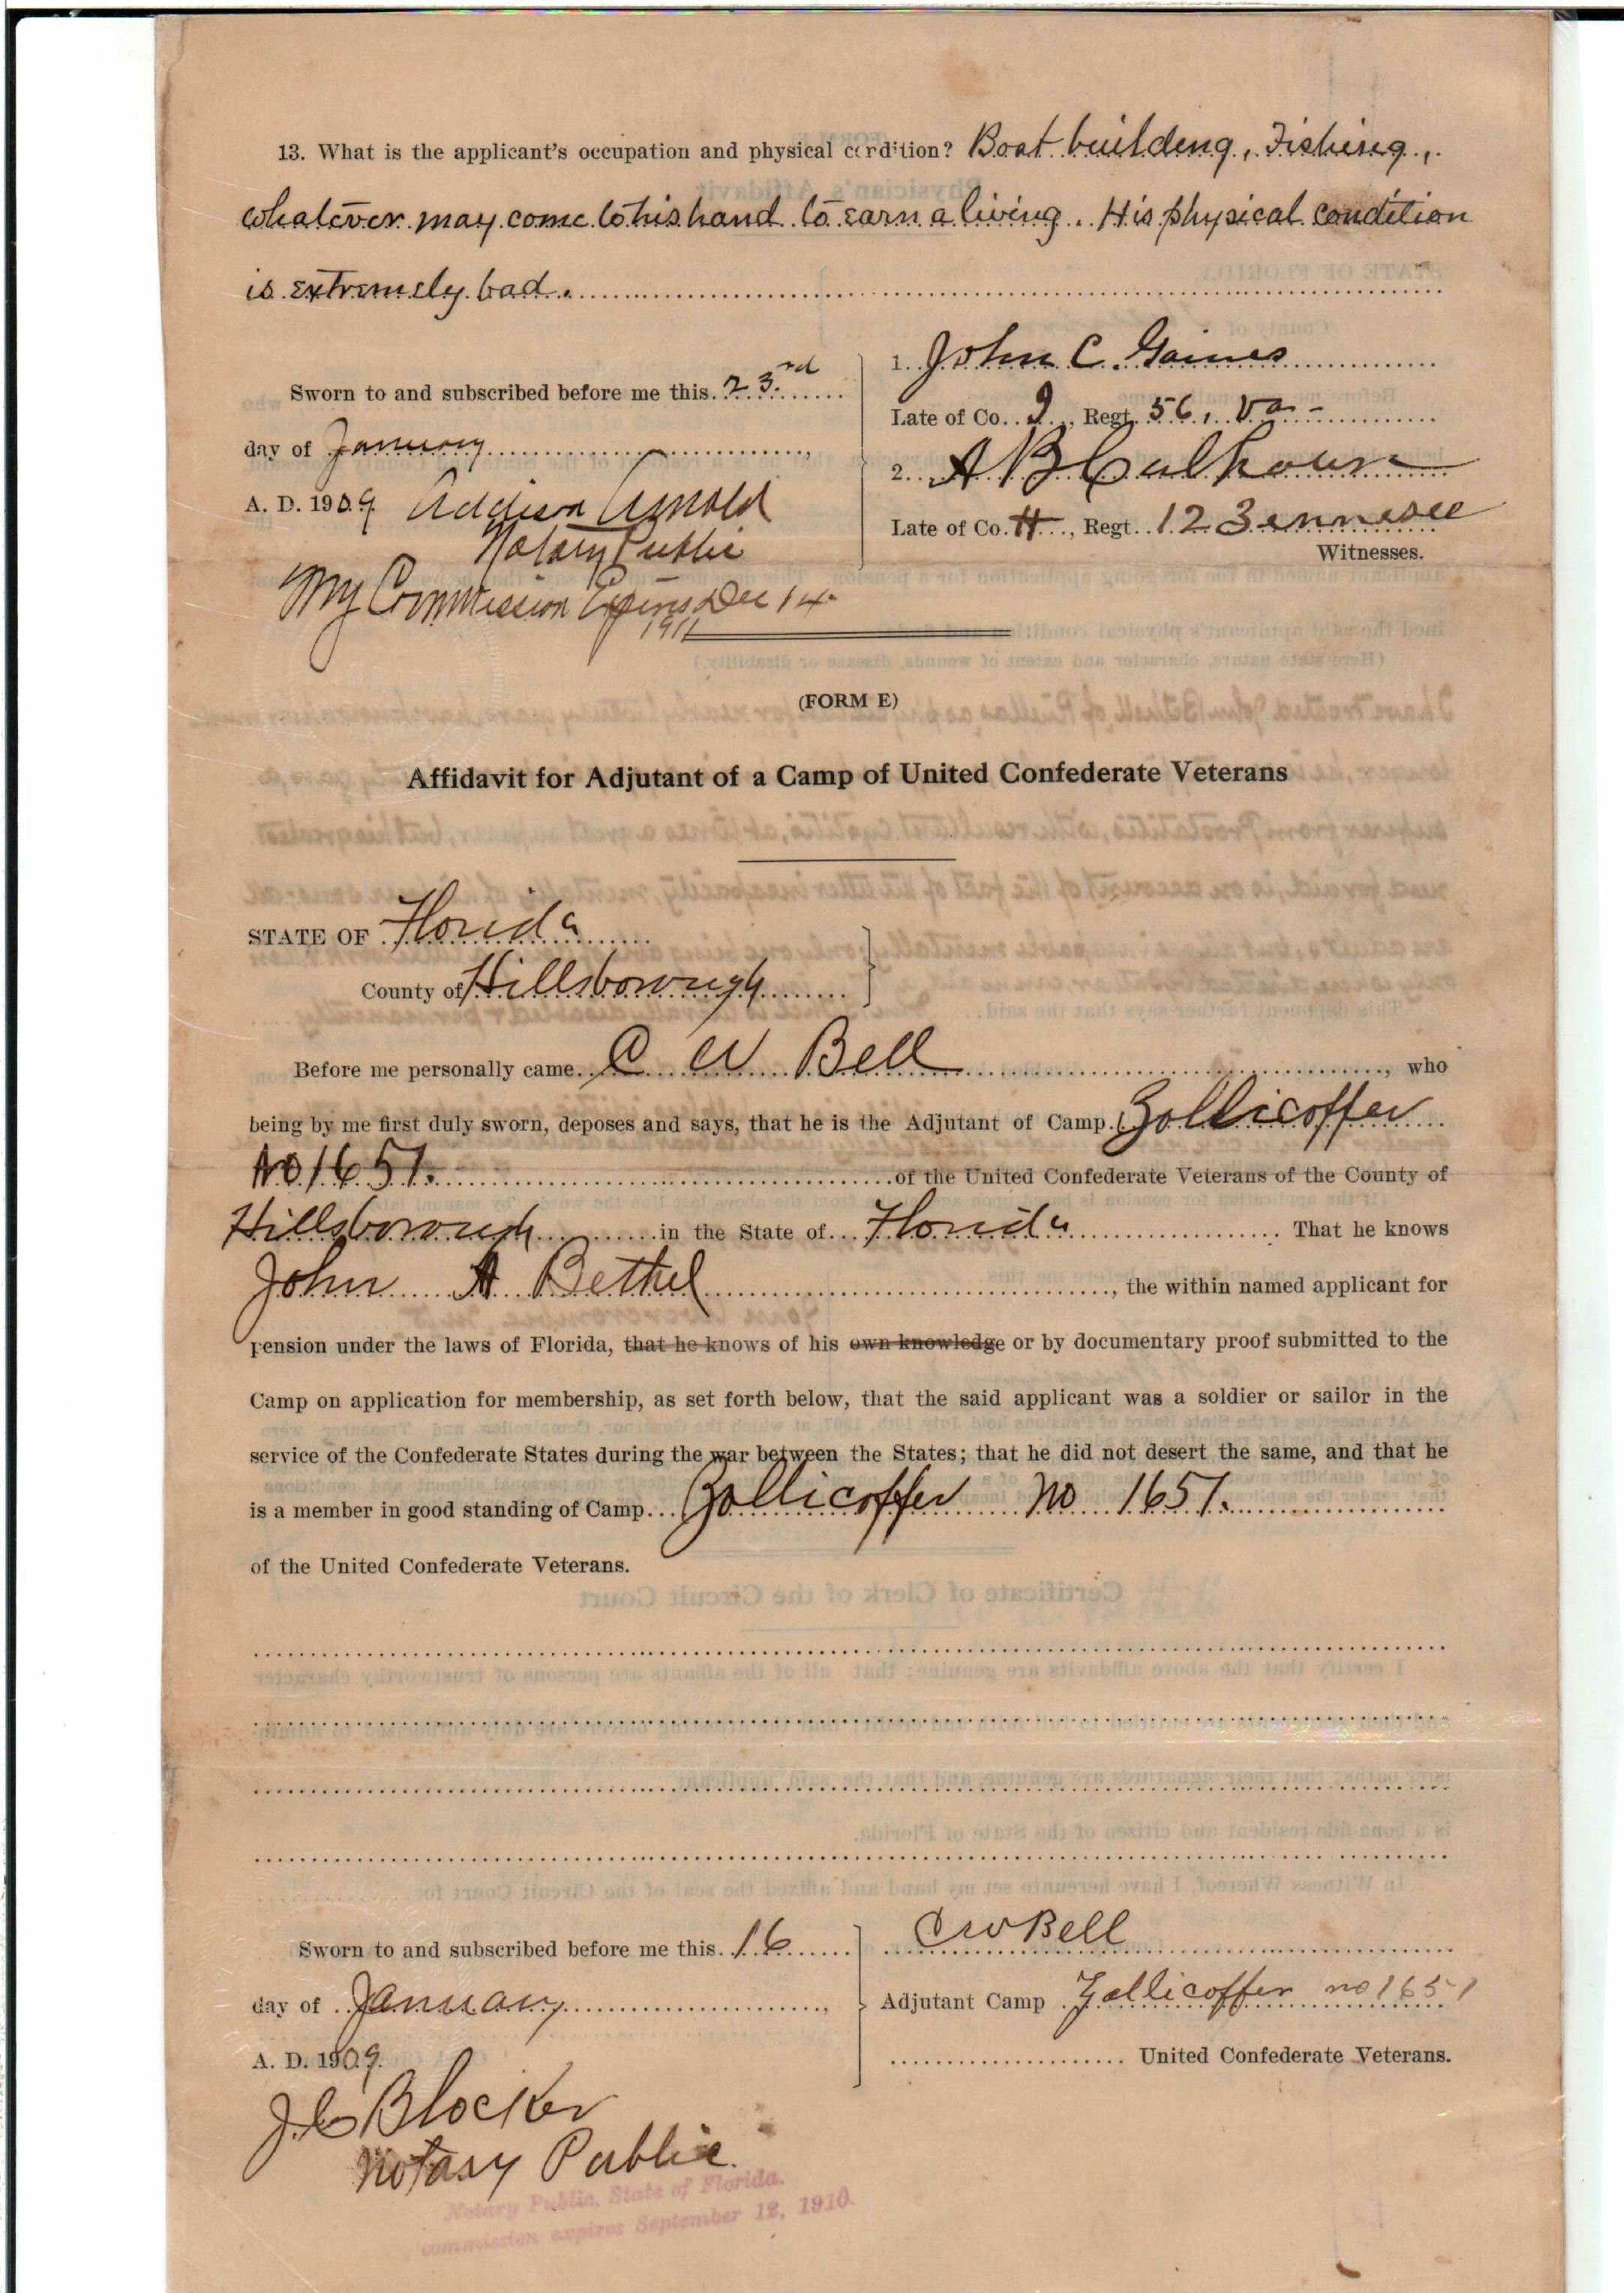 13. What is the applicant's occupation and physical condition? Boat building, Fishing,
whatever may come to his hand to earn a living. His physical condition
is extremely bad.
Sworn to and subscribed before me this 23rd
day of January,
A. D. 1909. Addison Arnold
Notary Public
My Commission Expires Dec 14-
1911
1. John C. Gaines
Late of Co. I, Regt. 56, Va-
2. A B Calhoun
Late of Co. H, Regt. 12 Tennesee
Witnesses.
(FORM E)
Affidavit for Adjutant of a Camp of United Confederate Veterans
STATE OF Florida
County of Hillsborough
Before me personally came C W Bell, who
being by me first duly sworn, deposes and says, that he is the Adjutant of Camp. Zollicoffer
No 1651. of the United Confederate Veterans of the County of
Hillsborough in the State of Florida. That he knows
John A Bethel, the within named applicant for
pension under the laws of Florida, that he knows of his own knowledge or by documentary proof submitted to the
Camp on application for membership, as set forth below, that the said applicant was a soldier or sailor in the
service of the Confederate States during the war between the States; that he did not desert the same, and that he
is a member in good standing of Camp Zollicoffer No 1651.
of the United Confederate Veterans.
Sworn to and subscribed before me this 16
day of January,
A. D. 1909.
J. C Blocker
Notary Public.
Notary Public, State of Florida.
commission expires September 12, 1910.
C W Bell
Adjutant Camp Zollicoffer no 1651
United Confederate Veterans.